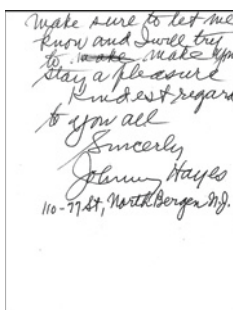 make sure to let me
know and I will try
to make make you
stay a pleasure
Kindest regard
to you all
Sincerly
Johnny Hayes
110-77 St, North Bergen N.J.